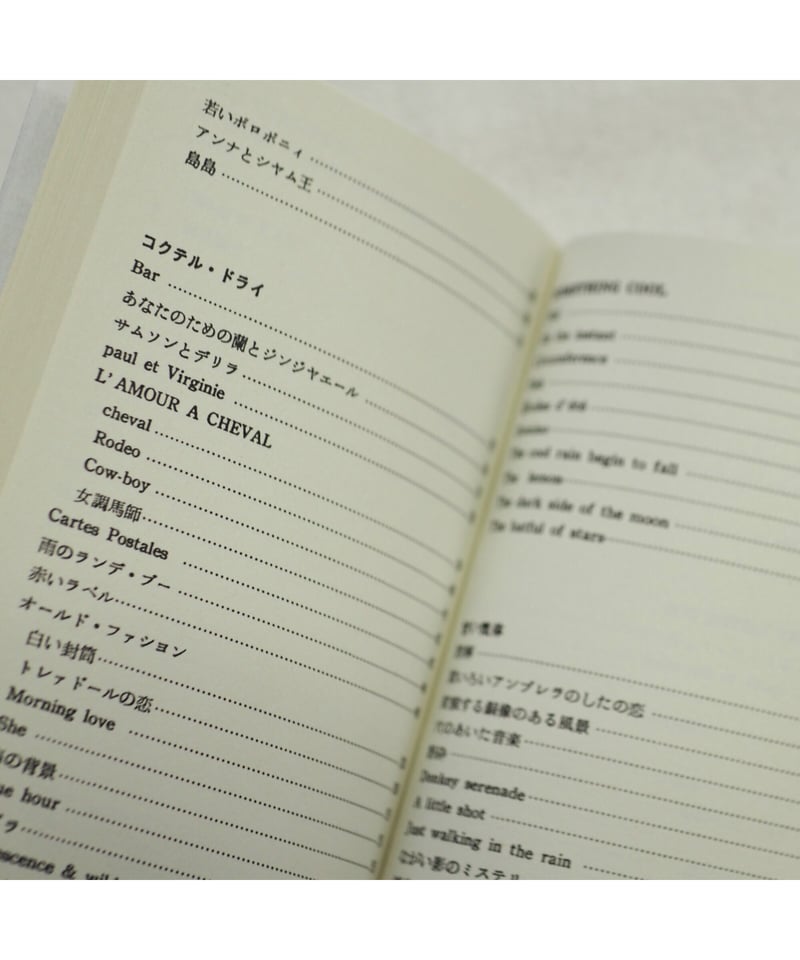 若いポロポニイ
アンナとシヤム王
島島
コクテル・ドライ
Bar
あなたのための蘭とジンジヤエール
サムソンとデリラ
paul et Virginie
L'AMOUR A CHEVAL
cheval
Rodeo
Cow-boy
女調馬師
Cartes Postales
雨のランデ・ブー
赤いラベル
オールド・ファシヨン
白い封筒
トレァドールの恋
Morning love
She
の背景
hour
COOL
rain begin to fall
lemon
dark side of the moon
hatful of stars
いろいアンブレラのしたの恋
する銅像のある風景
のあいた音楽
Donkey serenade
A little shot
Just walking in the rain
ながい影のミステリ